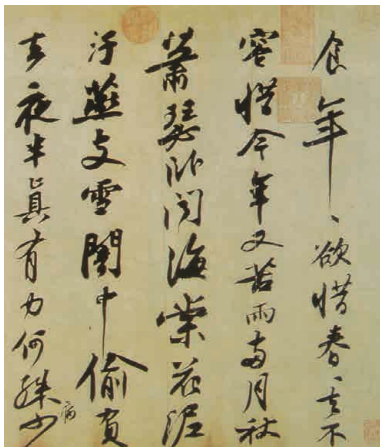 食年〻欲惜春〻去不
容惜今年又苦雨兩月秋
蕭瑟卧聞海棠花泥
汙燕支雪闇中偷負
去夜半真有力何殊病少